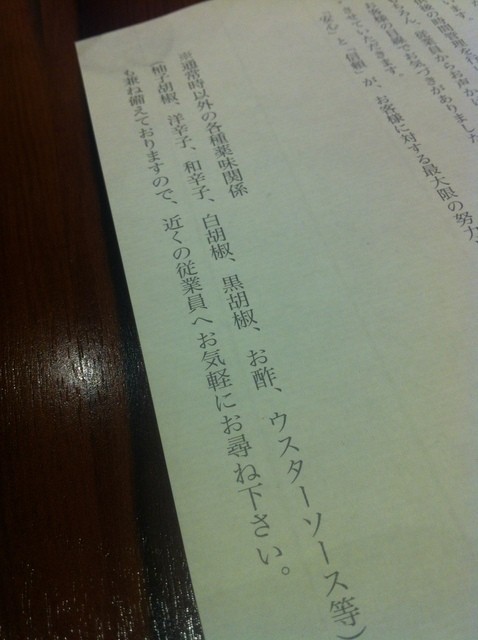 います。
後の時間管理を行
ちろん、従業員からお声が
お客様の目線でお気づきがありました
させていただきます。
「安心」と「信頼」が、お客様に対する最大限の努力、
※通常時以外の各種薬味関係
(柚子胡椒、洋辛子、和辛子、白胡椒、黒胡椒、お酢、ウスターソース等)
も兼ね備えておりますので、近くの従業員へお気軽にお尋ね下さい。